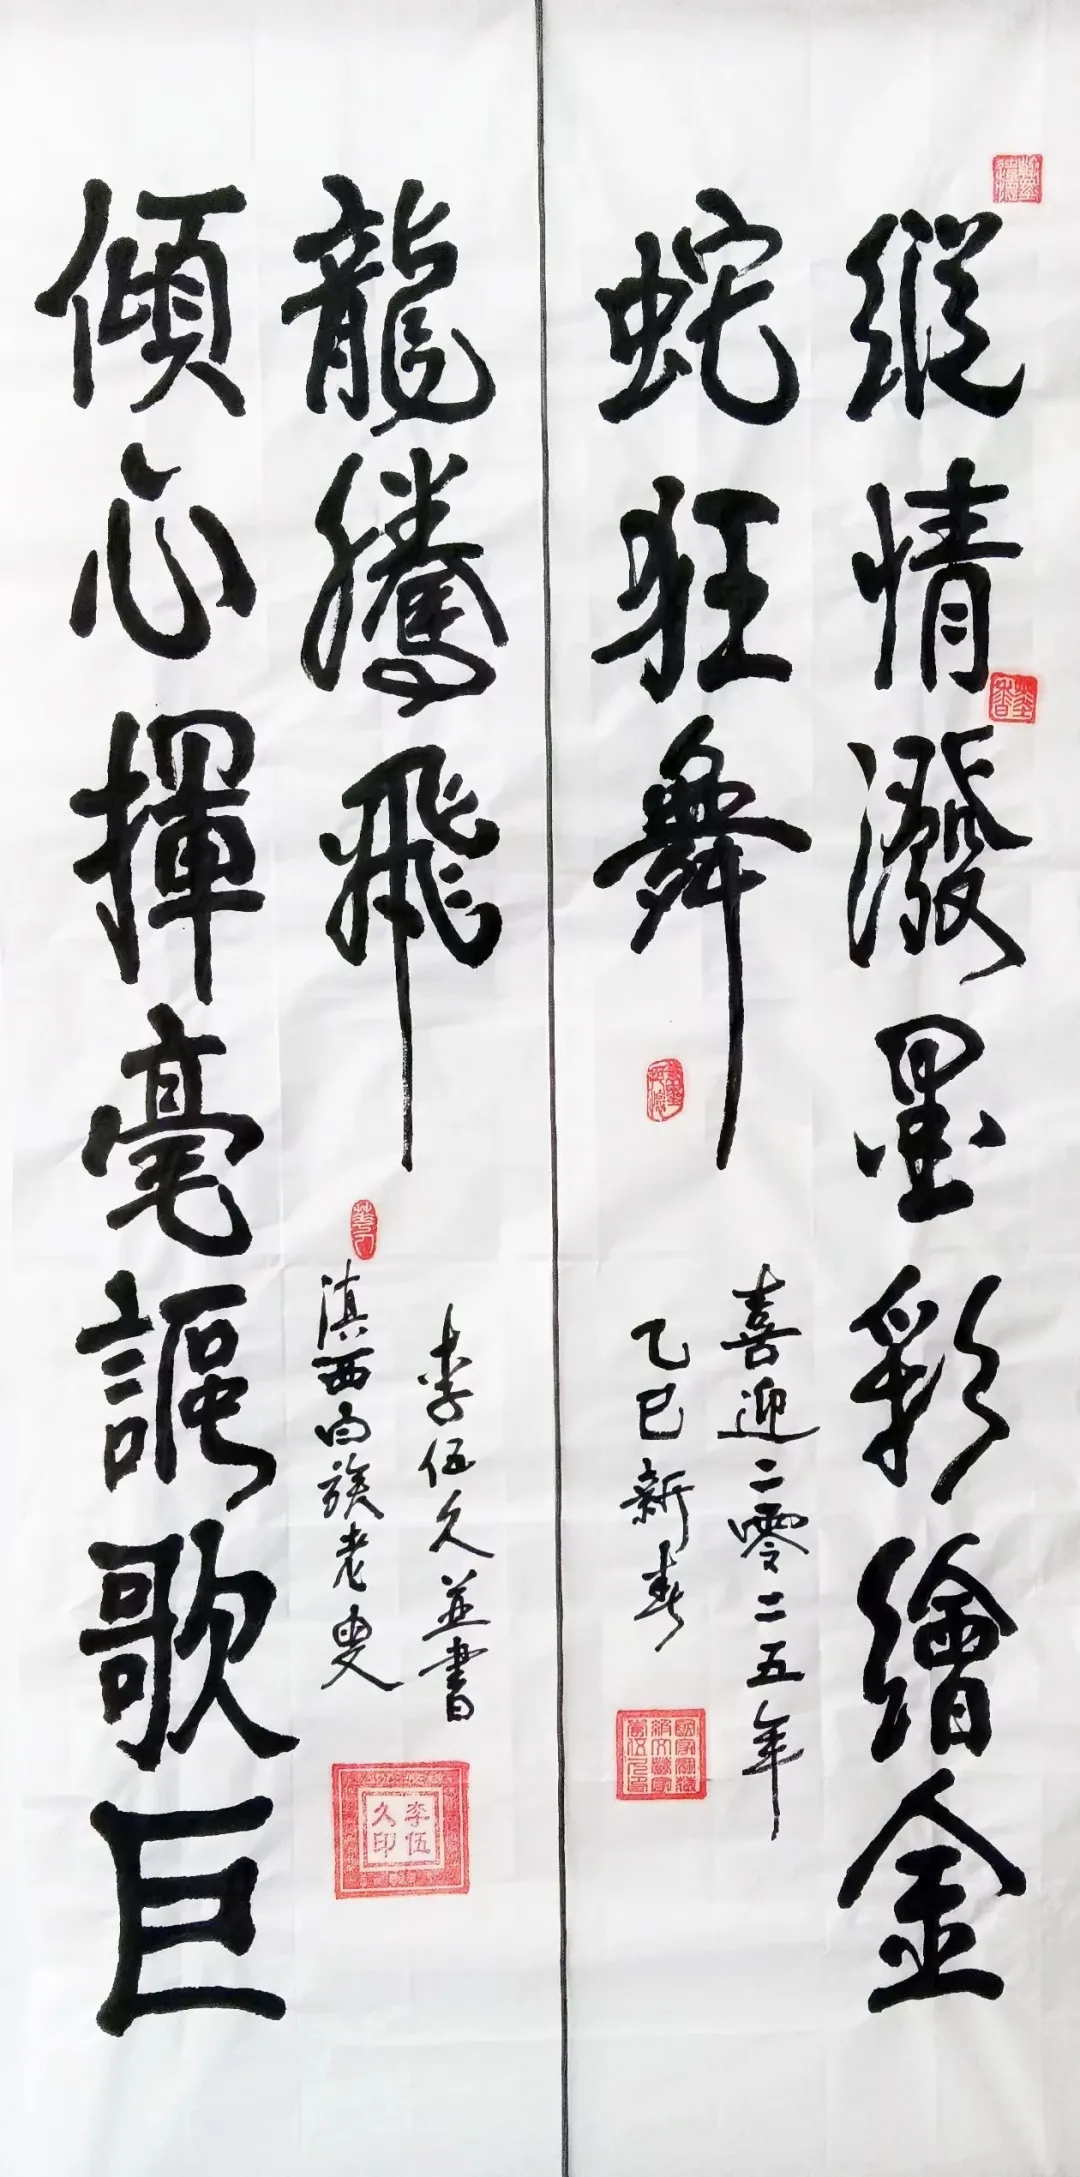 縱情潑墨彩繪金
蛇狂舞
喜迎二零二五年
乙巳新春
傾心揮毫謳歌巨
龍騰飛
滇西白族老叟
李伍久並書
李伍久印